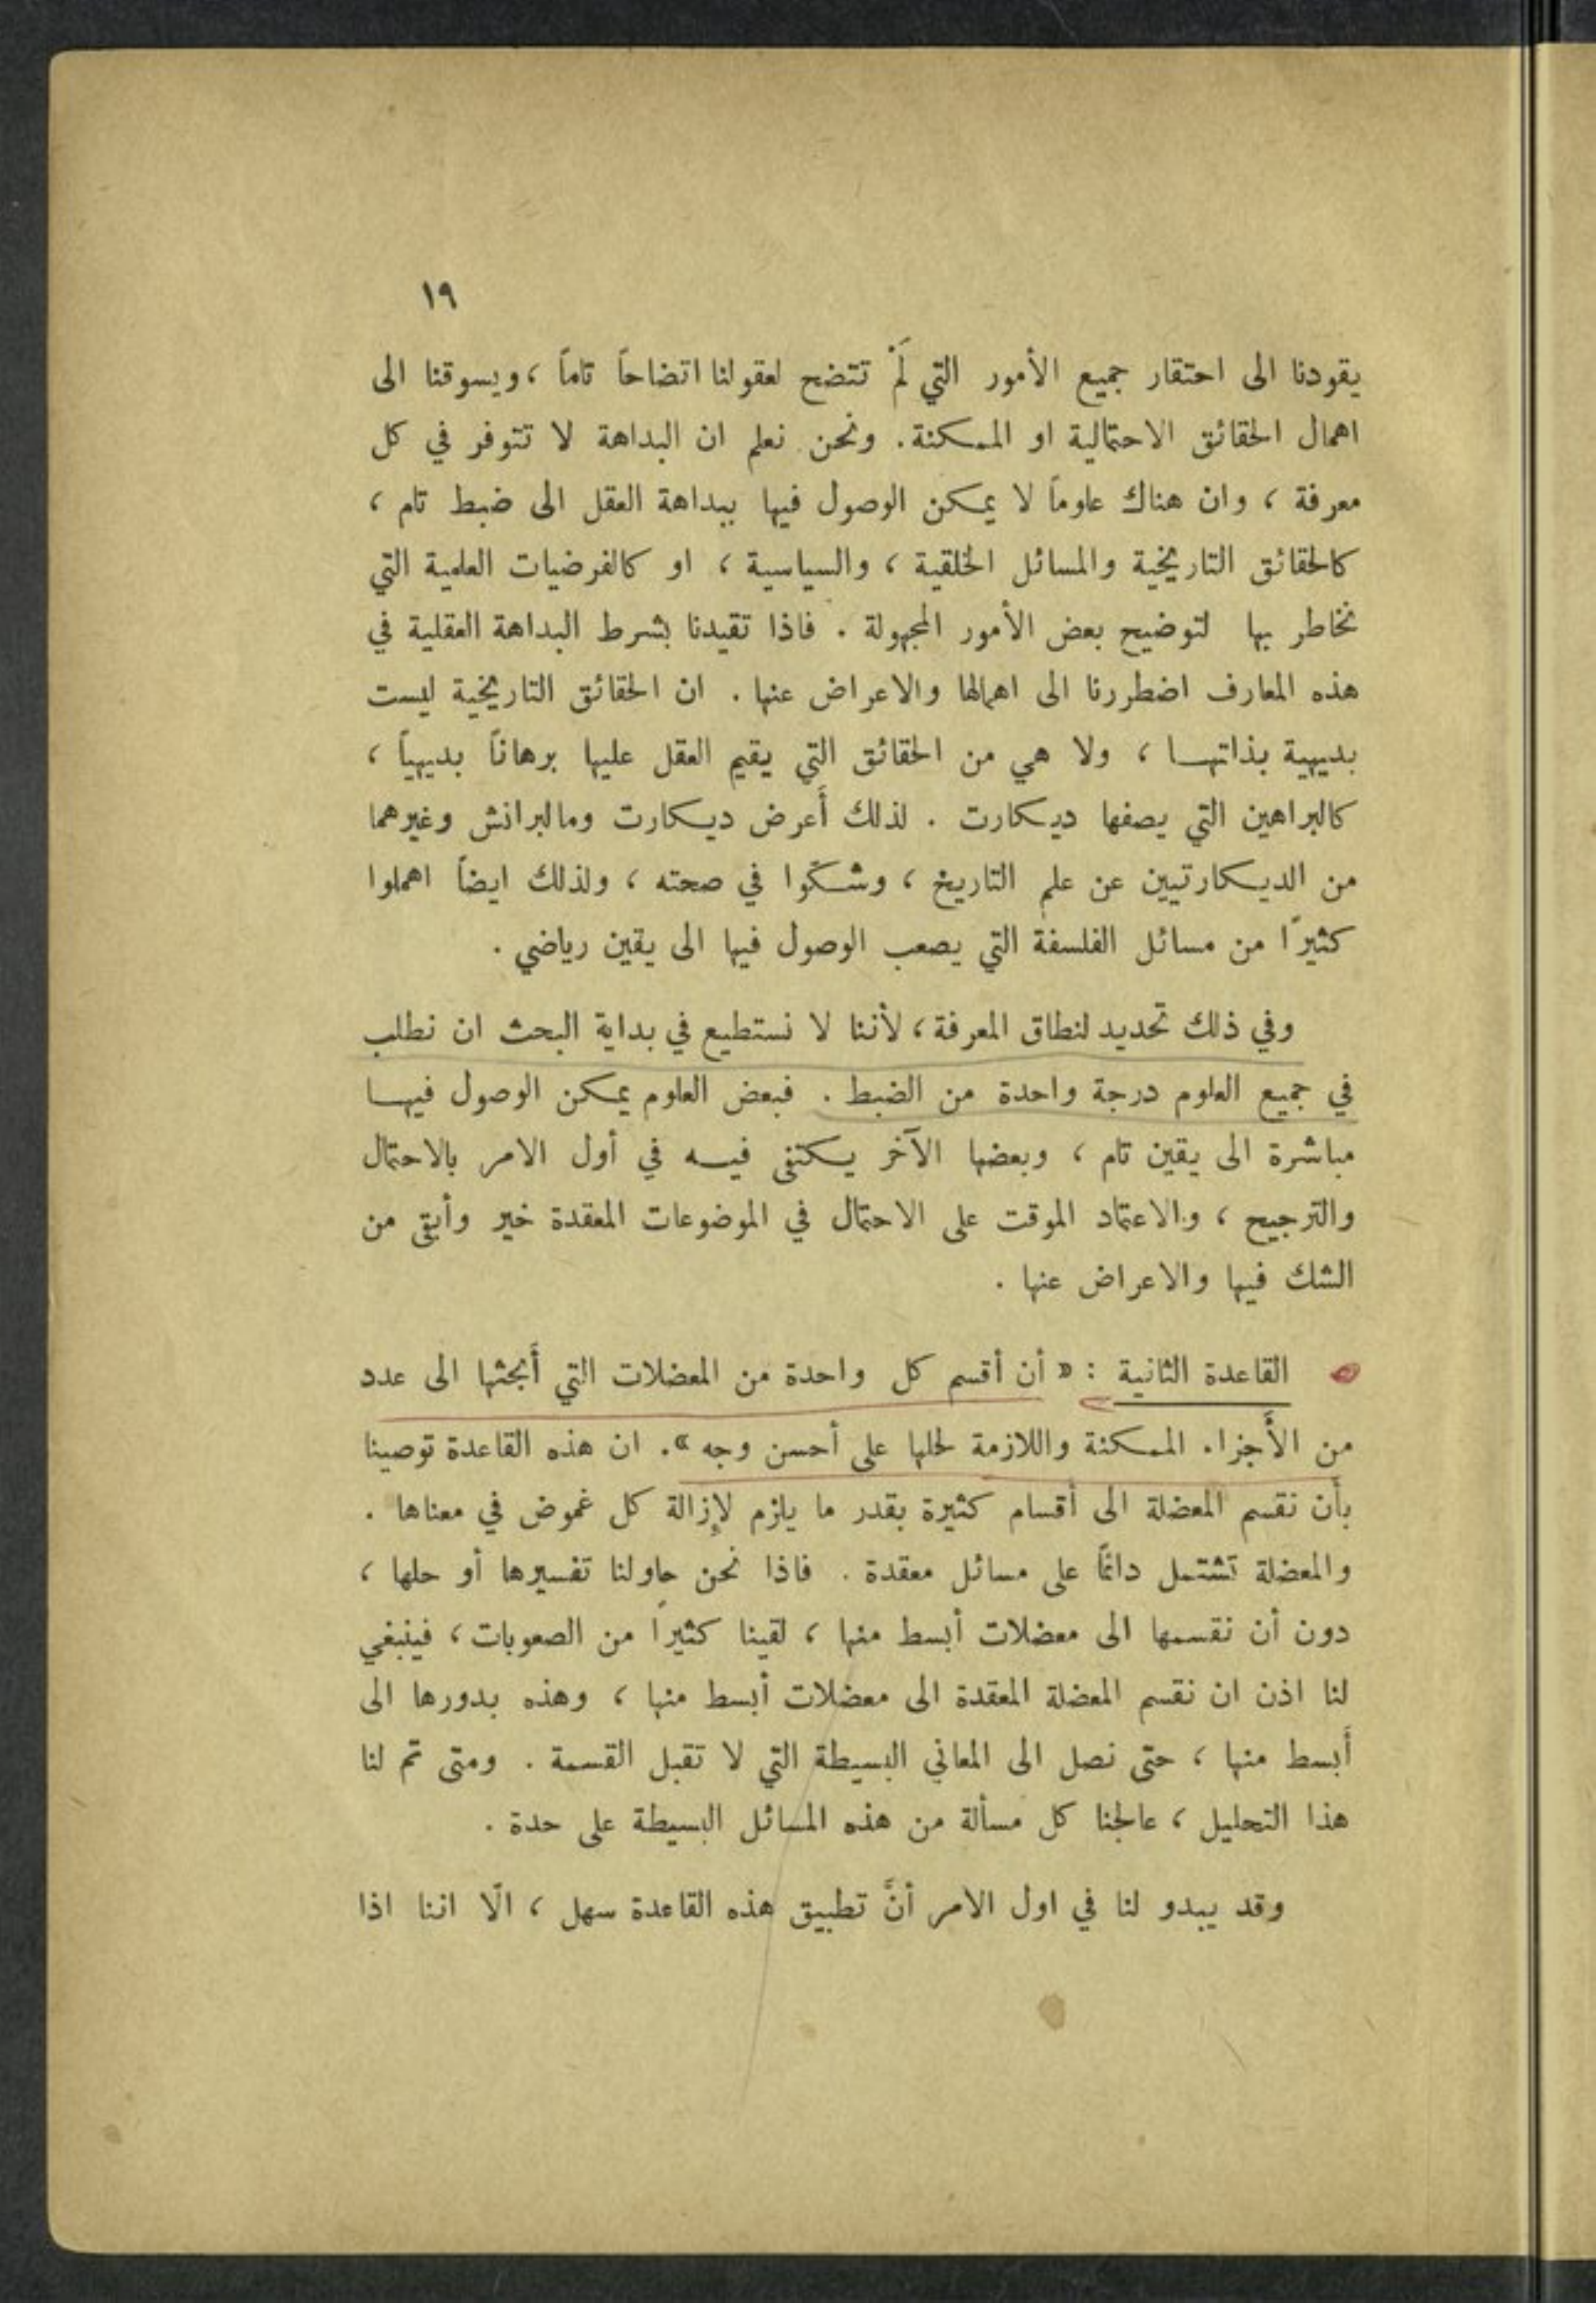 ١٩
يقودنا الى احتقار جميع الأمور التي لَمْ تتضح لعقولنا اتضاحاً تاماً ، ويسوقنا الى
اهمال الحقائق الاحتمالية او الممكنة . ونحن نعلم ان البداهة لا تتوفر في كل
معرفة ، وان هناك علوماً لا يمكن الوصول فيها ببداهة العقل الى ضبط تام ،
كالحقائق التاريخية والمسائل الخلقية ، والسياسية ، او كالفرضيات العلمية التي
نخاطر بها لتوضيح بعض الأمور المجهولة . فاذا تقيدنا بشرط البداهة العقلية في
هذه المعارف اضطررنا الى اهمالها والاعراض عنها . ان الحقائق التاريخية ليست
بديهية بذاتهـا ، ولا هي من الحقائق التي يقيم العقل عليها برهاناً بديهياً ،
كالبراهين التي يصفها ديكارت . لذلك أَعرض ديكارت ومالبرانش وغيرهما
من الديكارتيين عن علم التاريخ ، وشكّوا في صحته ، ولذلك ايضاً اهملوا
كثيرًا من مسائل الفلسفة التي يصعب الوصول فيها الى يقين رياضي .
وفي ذلك تحديد لنطاق المعرفة ، لأننا لا نستطيع في بداية البحث ان نطلب
في جميع العلوم درجة واحدة من الضبط . فبعض العلوم يمكن الوصول فيهـا
مباشرة الى يقين تام ، وبعضها الآخر يكتفى فيـه في أول الامر بالاحتمال
والترجيح ، والاعتماد الموقت على الاحتمال في الموضوعات المعقدة خير وأبقى من
الشك فيها والاعراض عنها .
القاعدة الثانية : « أن أقسم كل واحدة من المعضلات التي أَبحثها الى عدد
من الأَجزاء الممكنة واللازمة لحلها على أحسن وجه » . ان هذه القاعدة توصينا
بأن نقسم المعضلة الى أقسام كثيرة بقدر ما يلزم لإِزالة كل غموض في معناها .
والمعضلة تشتمل دائماً على مسائل معقدة . فاذا نحن حاولنا تفسيرها أو حلها ،
دون أن نقسمها الى معضلات أبسط منها ، لقينا كثيرًا من الصعوبات ، فينبغي
لنا اذن ان نقسم المعضلة المعقدة الى معضلات أبسط منها ، وهذه بدورها الى
أَبسط منها ، حتى نصل الى المعاني البسيطة التي لا تقبل القسمة . ومتى تم لنا
هذا التحليل ، عالجنا كل مسألة من هذه المسائل البسيطة على حدة .
وقد يبدو لنا في اول الامر أنَّ تطبيق هذه القاعدة سهل ، الّا اننا اذا